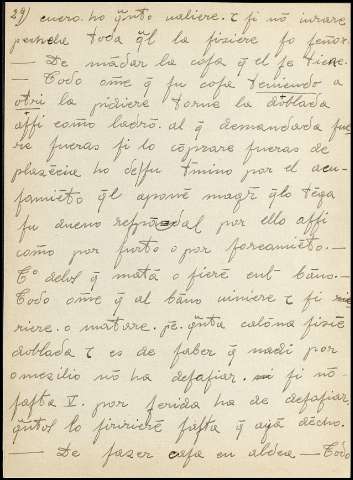 24) cuero. ho q̃nto valiere. τ si nõ iurare
peñdra toda q̃l la fiziere so señor.
— De mãdar la cosa q̃ el se tiene.
— Todo om̃e q̃ su cosa teniendo a
otri la pidiere torne la doblada
assi como ladrõ. al q̃ demandada fue-
re fueras si lo cõprare fueras de
plazẽcia ho dessu t̃mino por el acu-
samiẽto q̃l aponẽ mag̃r q̃lo tẽga
su dueno respõdal por ello assi
como por furto o por forcamiẽto. —
Tº delos q̃ matã o fierẽ enl bãno. —
Todo om̃e q̃ al bãno viniere τ si
riere. o matare. pe. q̃nta calõna fiziẽ
doblada τ es de saber q̃ nadi por
omezilio nõ ha desafiar. si nõ
fasta V. por ferida ha de desafiar.
q̃ntos lo firierẽ fasta q̃ ayã dẽcho.
— De fazer casa en aldea — Todo